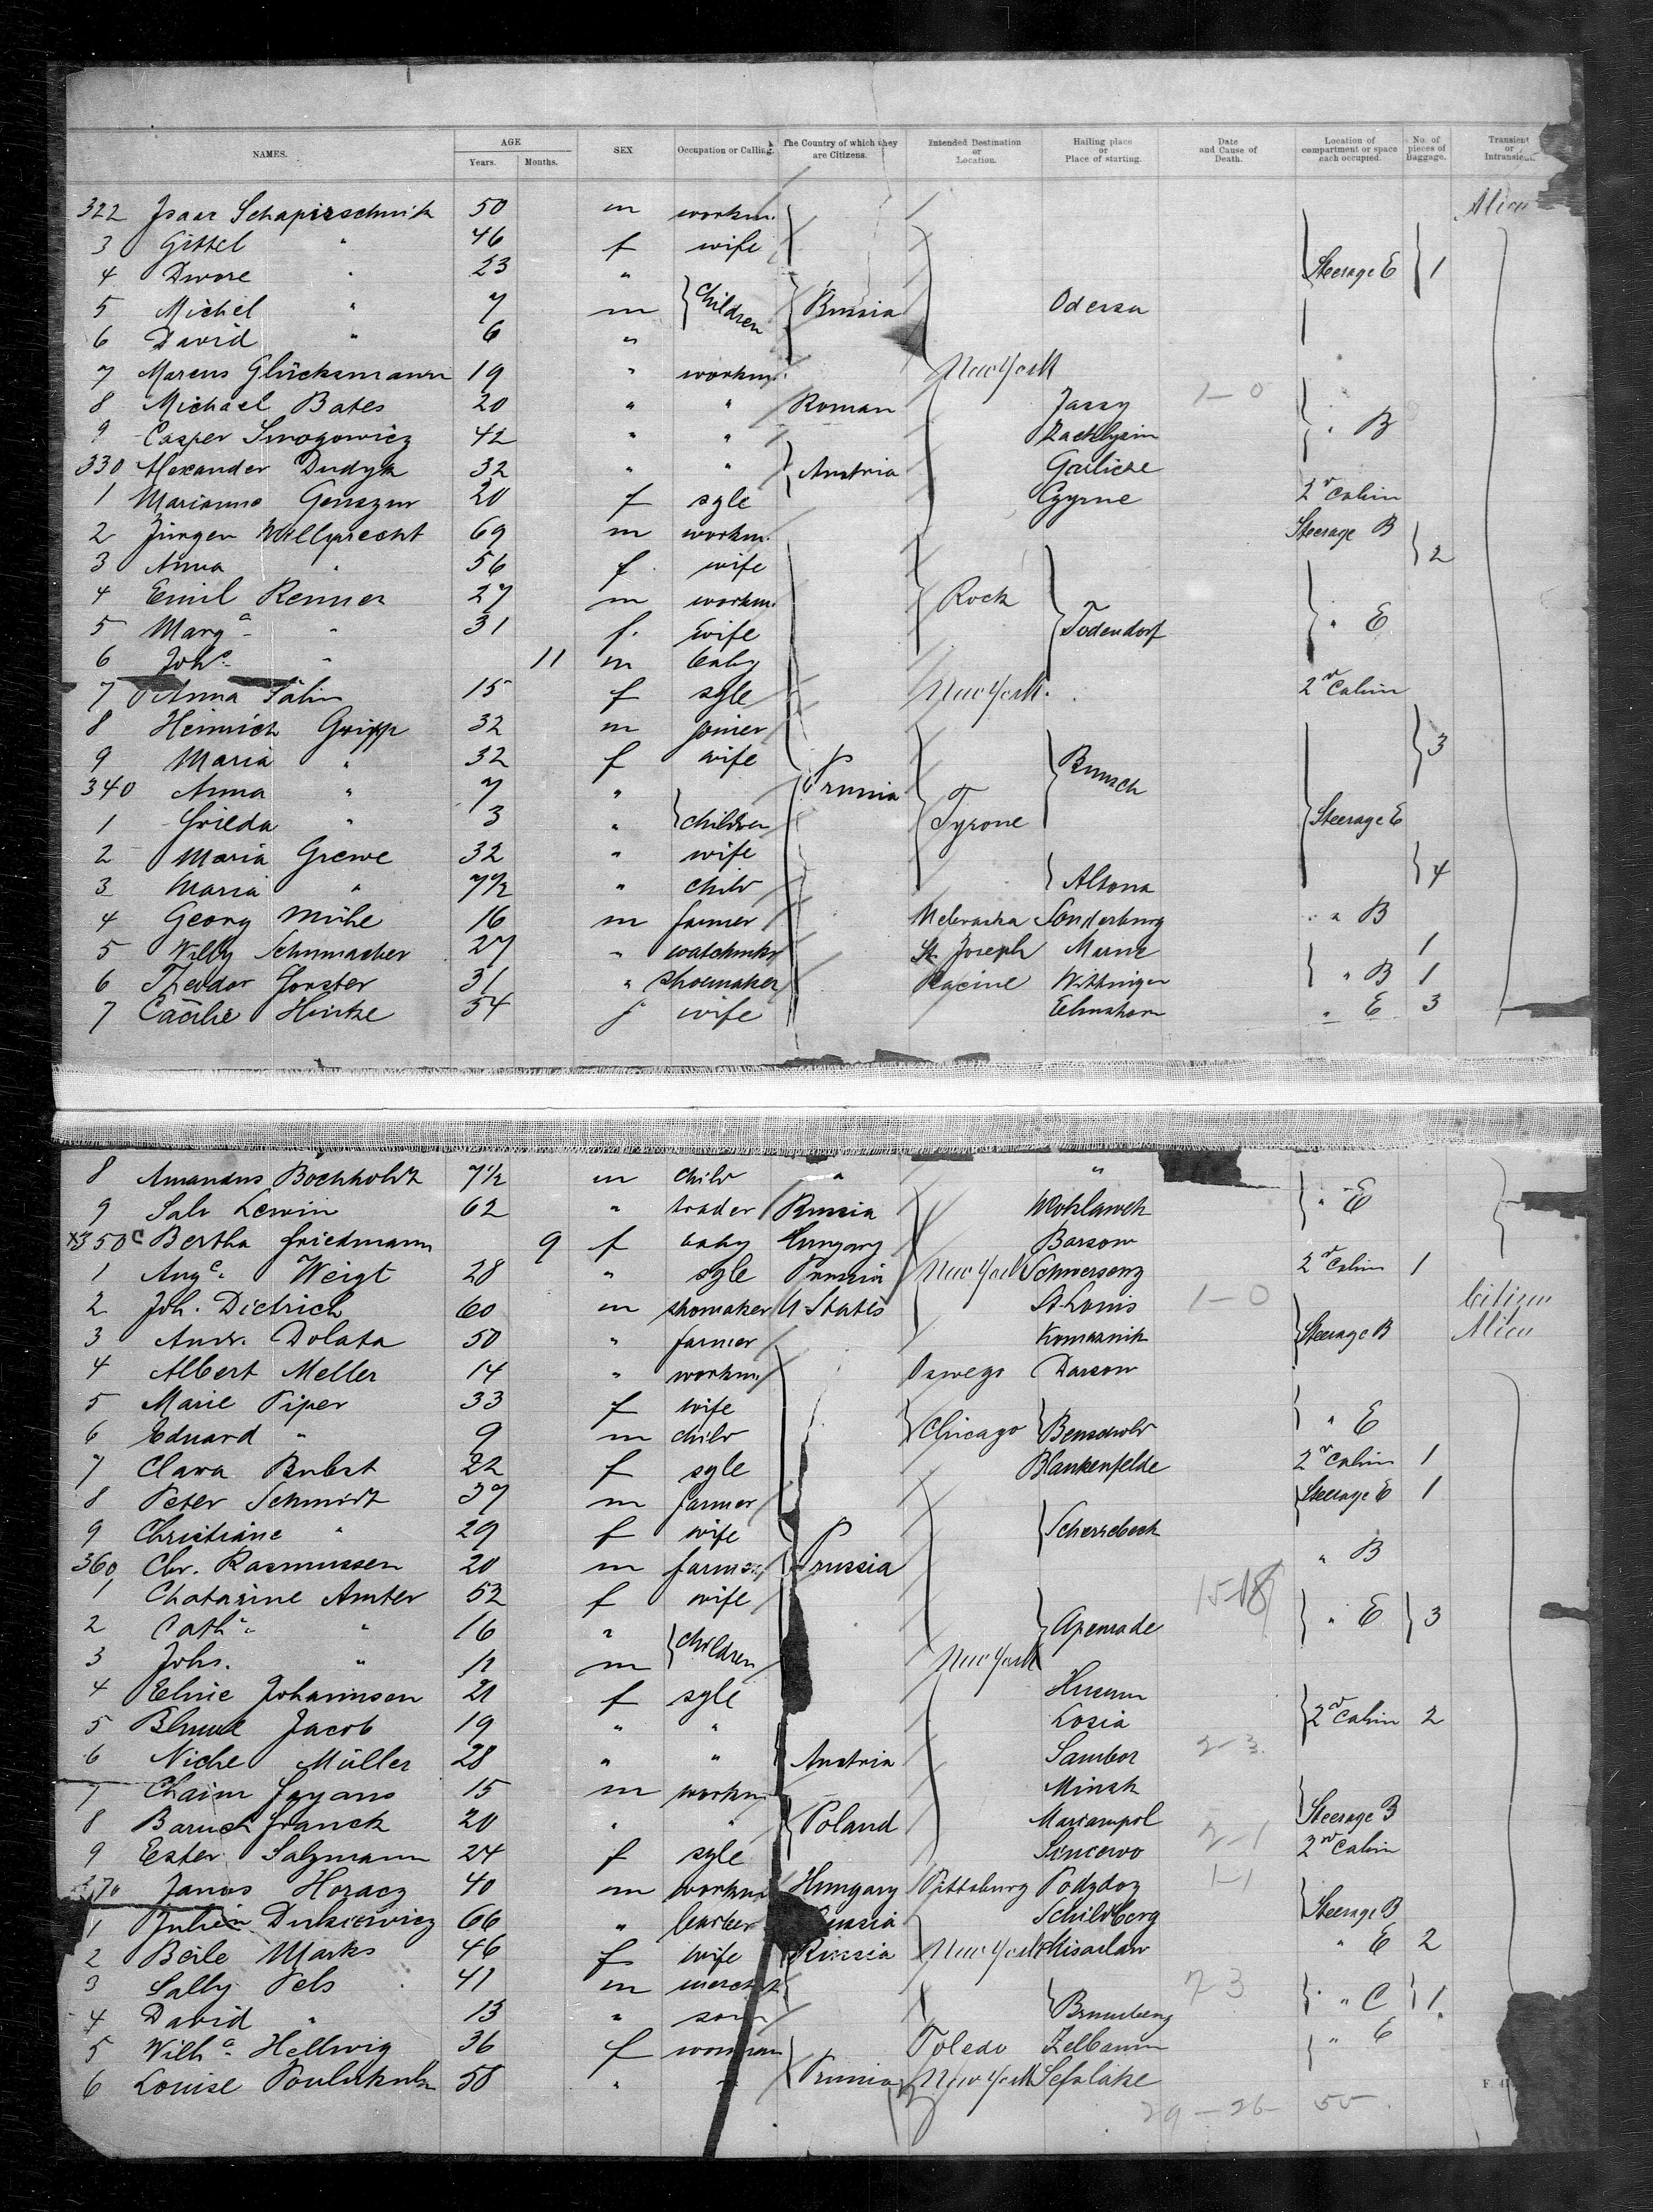 NAMES. AGE Years. Months. SEX Occupation or Calling. The Country of which they are Citizens. Intended Destination or Location. Hailing place or Place of starting. Date and Cause of Death. Location of compartment or space each occupied. No. of pieces of Baggage. Transient or
322 Isaac 50 m workm. Alien
3 Gittel " 46 f wife Steerage E 1
4 Dwore " 23 " Children
5 Michel " 7 m Russia Odessa
6 David " 6 "
7 Marcus Glücksmann 19 " workm. New York
8 Michael Bates 20 " " Roman Jassy 1-0
9 Casper 42 " " " B
330 Alexander Dudyk 32 " " Austria Gorlicze
1 Marianna 20 f sgle 2nd Cabin
2 Jürgen Wellprecht 69 m workm. Steerage B
3 Anna " 56 f wife 2
4 Emil Renner 27 m workm. Rock
5 Marg a " 31 f. wife Todendorf " E
6 Joh s " 11 m baby
7 Anna 15 f sgle New York. 2nd Cabin
8 Heinrich Gripp 32 m joiner
9 Maria " 32 f wife 3
340 Anna " 7 " Prussia
1 Frieda " 3 " children Tyrone Steerage E
2 Maria Grewe 32 " wife
3 Maria " 7 1/2 " child Altona 4
4 Georg Mühe 16 m farmer Nebraska Sonderburg " B
5 Willy Schumacher 27 " watchmkr St. Joseph Marne 1
6 Theodor Forster 31 " shoemaker Racine " B 1
7 Cäcilie Hintze 54 f wife Elmshorn " E 3
8 Amandus Bochholdt 7 1/2 m child " "
9 Salv Lewin 62 " trader Russia " E
X350 C Bertha Friedmann 9 f baby Hungary
1 Aug e. Weigt 28 " sgle Prussia New York Schwersenz 2nd Cabin 1
2 Joh. Dietrich 60 m shomaker U States St Louis 1-0 Citizen
3 Andr. Dolata 50 " farmer Steerage B Alien
4 Albert Meller 14 " workm. Oswego Darsow
5 Marie Piper 33 f wife
6 Eduard " 9 m child Chicago " E
7 Clara Bubst 22 f sgle Blankenfelde 2nd Cabin 1
8 Peter Schmidt 37 m farmer Steerage E 1
9 Christiane " 29 f wife Scherrebeck
360 Chr. Rasmussen 20 m farmer Prussia " B
1 Chatarine Amter 52 f wife
2 Cath a. " 16 " children Apenrade " E 3
3 Johs. " 11 m New York
4 Elnie Johannsen 21 f sgle Husum
5 Blume Jacob 19 " " 2nd Cabin 2
6 Niche Müller 28 " " Austria Sambor 2-3
7 Chaim 15 m workm. Minsk
8 Baruch Franck 20 " " Poland Mariampol Steerage B
9 Ester Salzmann 24 f sgle 2-1 2nd Cabin
370 Janos Horacz 40 m workm Hungary Pittsburg 1-1
1 Julien Dukiewicz 66 " Schildberg Steerage B
2 Beile Marks 46 f wife Russia New York " E 2
3 Sally Pels 41 m 7-3 " C 1
4 David " 13 " son
5 Wilh a. Hellwig 36 f woman Toledo " E
6 Louise 58 " " Prussia New York
29-26 55